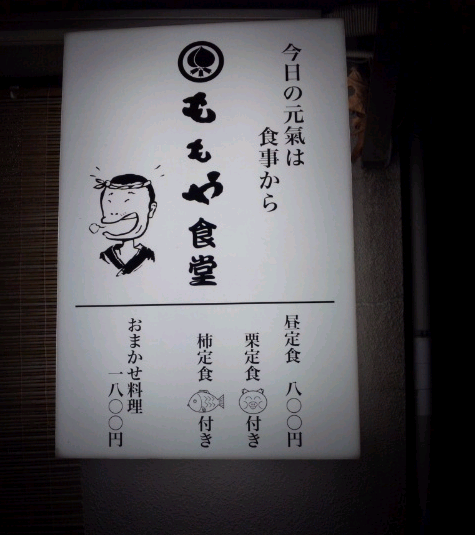 今日の元氣は
食事から
ももや食堂
昼定食 八〇〇円
栗定食 付き
柿定食 付き
おまかせ料理
一八〇〇円